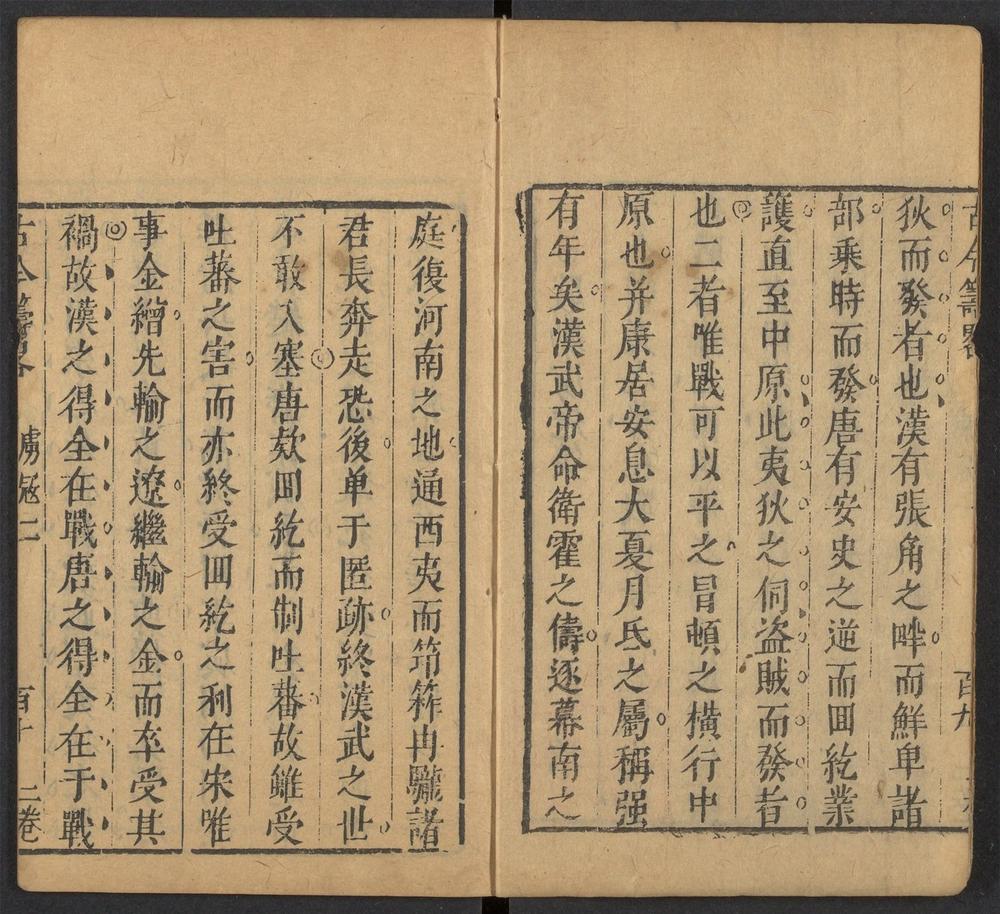 古今籌畧
百九
狄而發者也漢有張角之畔而鮮卑諸
部乘時而發唐有安史之逆而囬紇業
護直至中原此夷狄之伺盗賊而發者
也二者唯戰可以平之冒頓之橫行中
原也并康居安息大夏月氐之屬稱强
有年矣漢武帝命衛霍之儔逐幕南之
庭復河南之地通西夷而筇筰冉駹諸
君長奔走恐後单于匿跡終漢武之世
不敢入塞唐欸囬紇而制吐蕃故雖受
吐蕃之害而亦終受囬紇之利在宋唯
事金繒先輸之遼繼輸之金而卒受其
禍故漢之得全在戰唐之得全在于戰
古今籌畧 虜冦二 百十 二卷